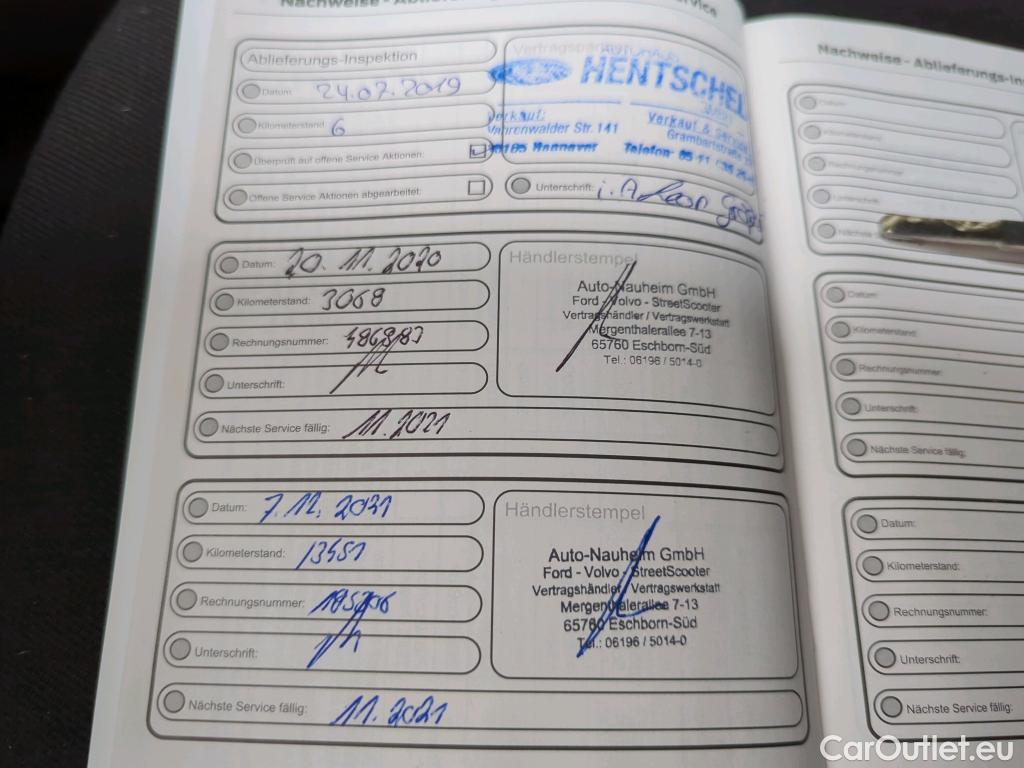 Nachweise - Ablieferungs-
Service
Ablieferungs-Inspektion
Vertragspartner
HENTSCHEL
Datum: 24.07.2019
Verkauf:
Verkauf & Service
Kilometerstand: 6
Vahrenwalder Str. 141
Telefon 05 11
Überprüft auf offene Service Aktionen:
Offene Service Aktionen abgearbeitet:
Unterschrift: i.A.
Datum: 20.11.2020
Kilometerstand: 3068
Rechnungsnummer:
Unterschrift:
Nächste Service fällig: 11.2021
Händlerstempel
Auto-Nauheim GmbH
Ford - Volvo - StreetScooter
Vertragshändler / Vertragswerkstatt
Mergenthalerallee 7-13
65760 Eschborn-Süd
Tel.: 06196 / 5014-0
Datum: 7.12.2021
Kilometerstand: 13451
Rechnungsnummer:
Unterschrift:
Nächste Service fällig: 11.2021
Händlerstempel
Auto-Nauheim GmbH
Ford - Volvo - StreetScooter
Vertragshändler / Vertragswerkstatt
Mergenthalerallee 7-13
65760 Eschborn-Süd
Tel.: 06196 / 5014-0
Nachweise - Ablieferungs-In
Datum:
Kilometerstand:
Rechnungsnummer:
Unterschrift:
Nächste
Datum:
Kilometerstand:
Rechnungsnummer:
Unterschrift:
Nächste Service fällig:
Datum:
Kilometerstand:
Rechnungsnummer:
Unterschrift:
Nächste Service fällig:
CarOutlet.eu